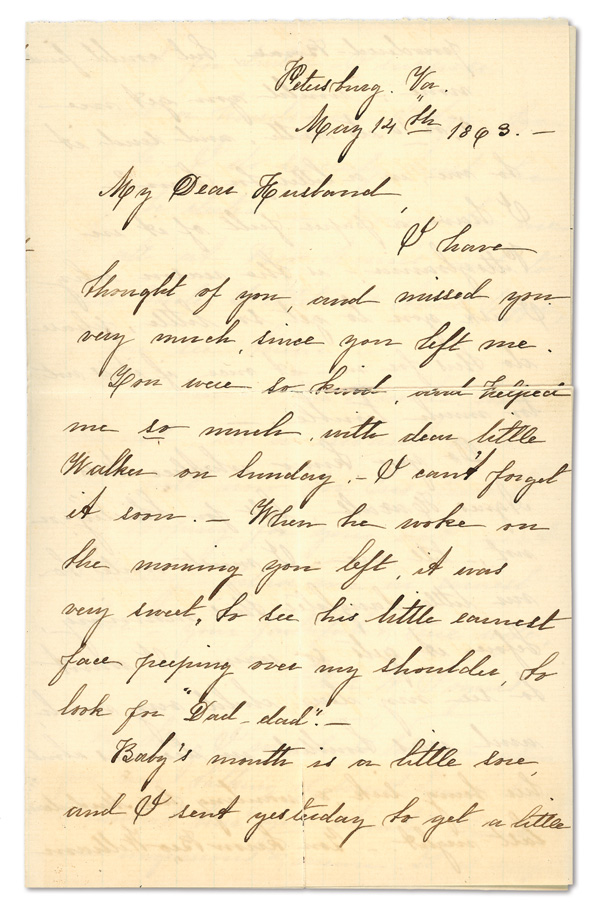 Petersburg. Va.
May 14th 1893. –
My Dear Husband,
I have
thought of you, and missed you
very much, since you left me.
You were so kind, and helped
me so much, with dear little
Walker on Sunday. – I can't forget
it soon. – When he woke on
the morning you left, it was
very sweet, to see his little earnest
face peeping over my shoulder, to
look for "Dad-dad". –
Baby's mouth is a little sore,
and I sent yesterday to get a little